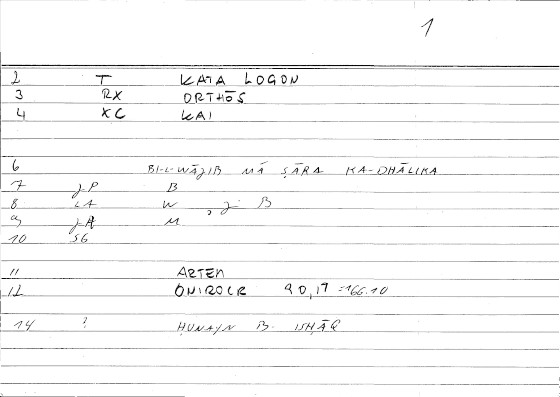 1
2 T KATA LOGON
3 RX ORTHŌS
4 XC KAI
6 BI-L-WĀJIB MĀ ṢĀRA KA-DHĀLIKA
7 JP B
8 LA W, J: B
9 JA M
10 SG
11 ARTEM
12 ONIROCR 90,17 =166.10
14 ? ḤUNAYN B. ISḤĀQ